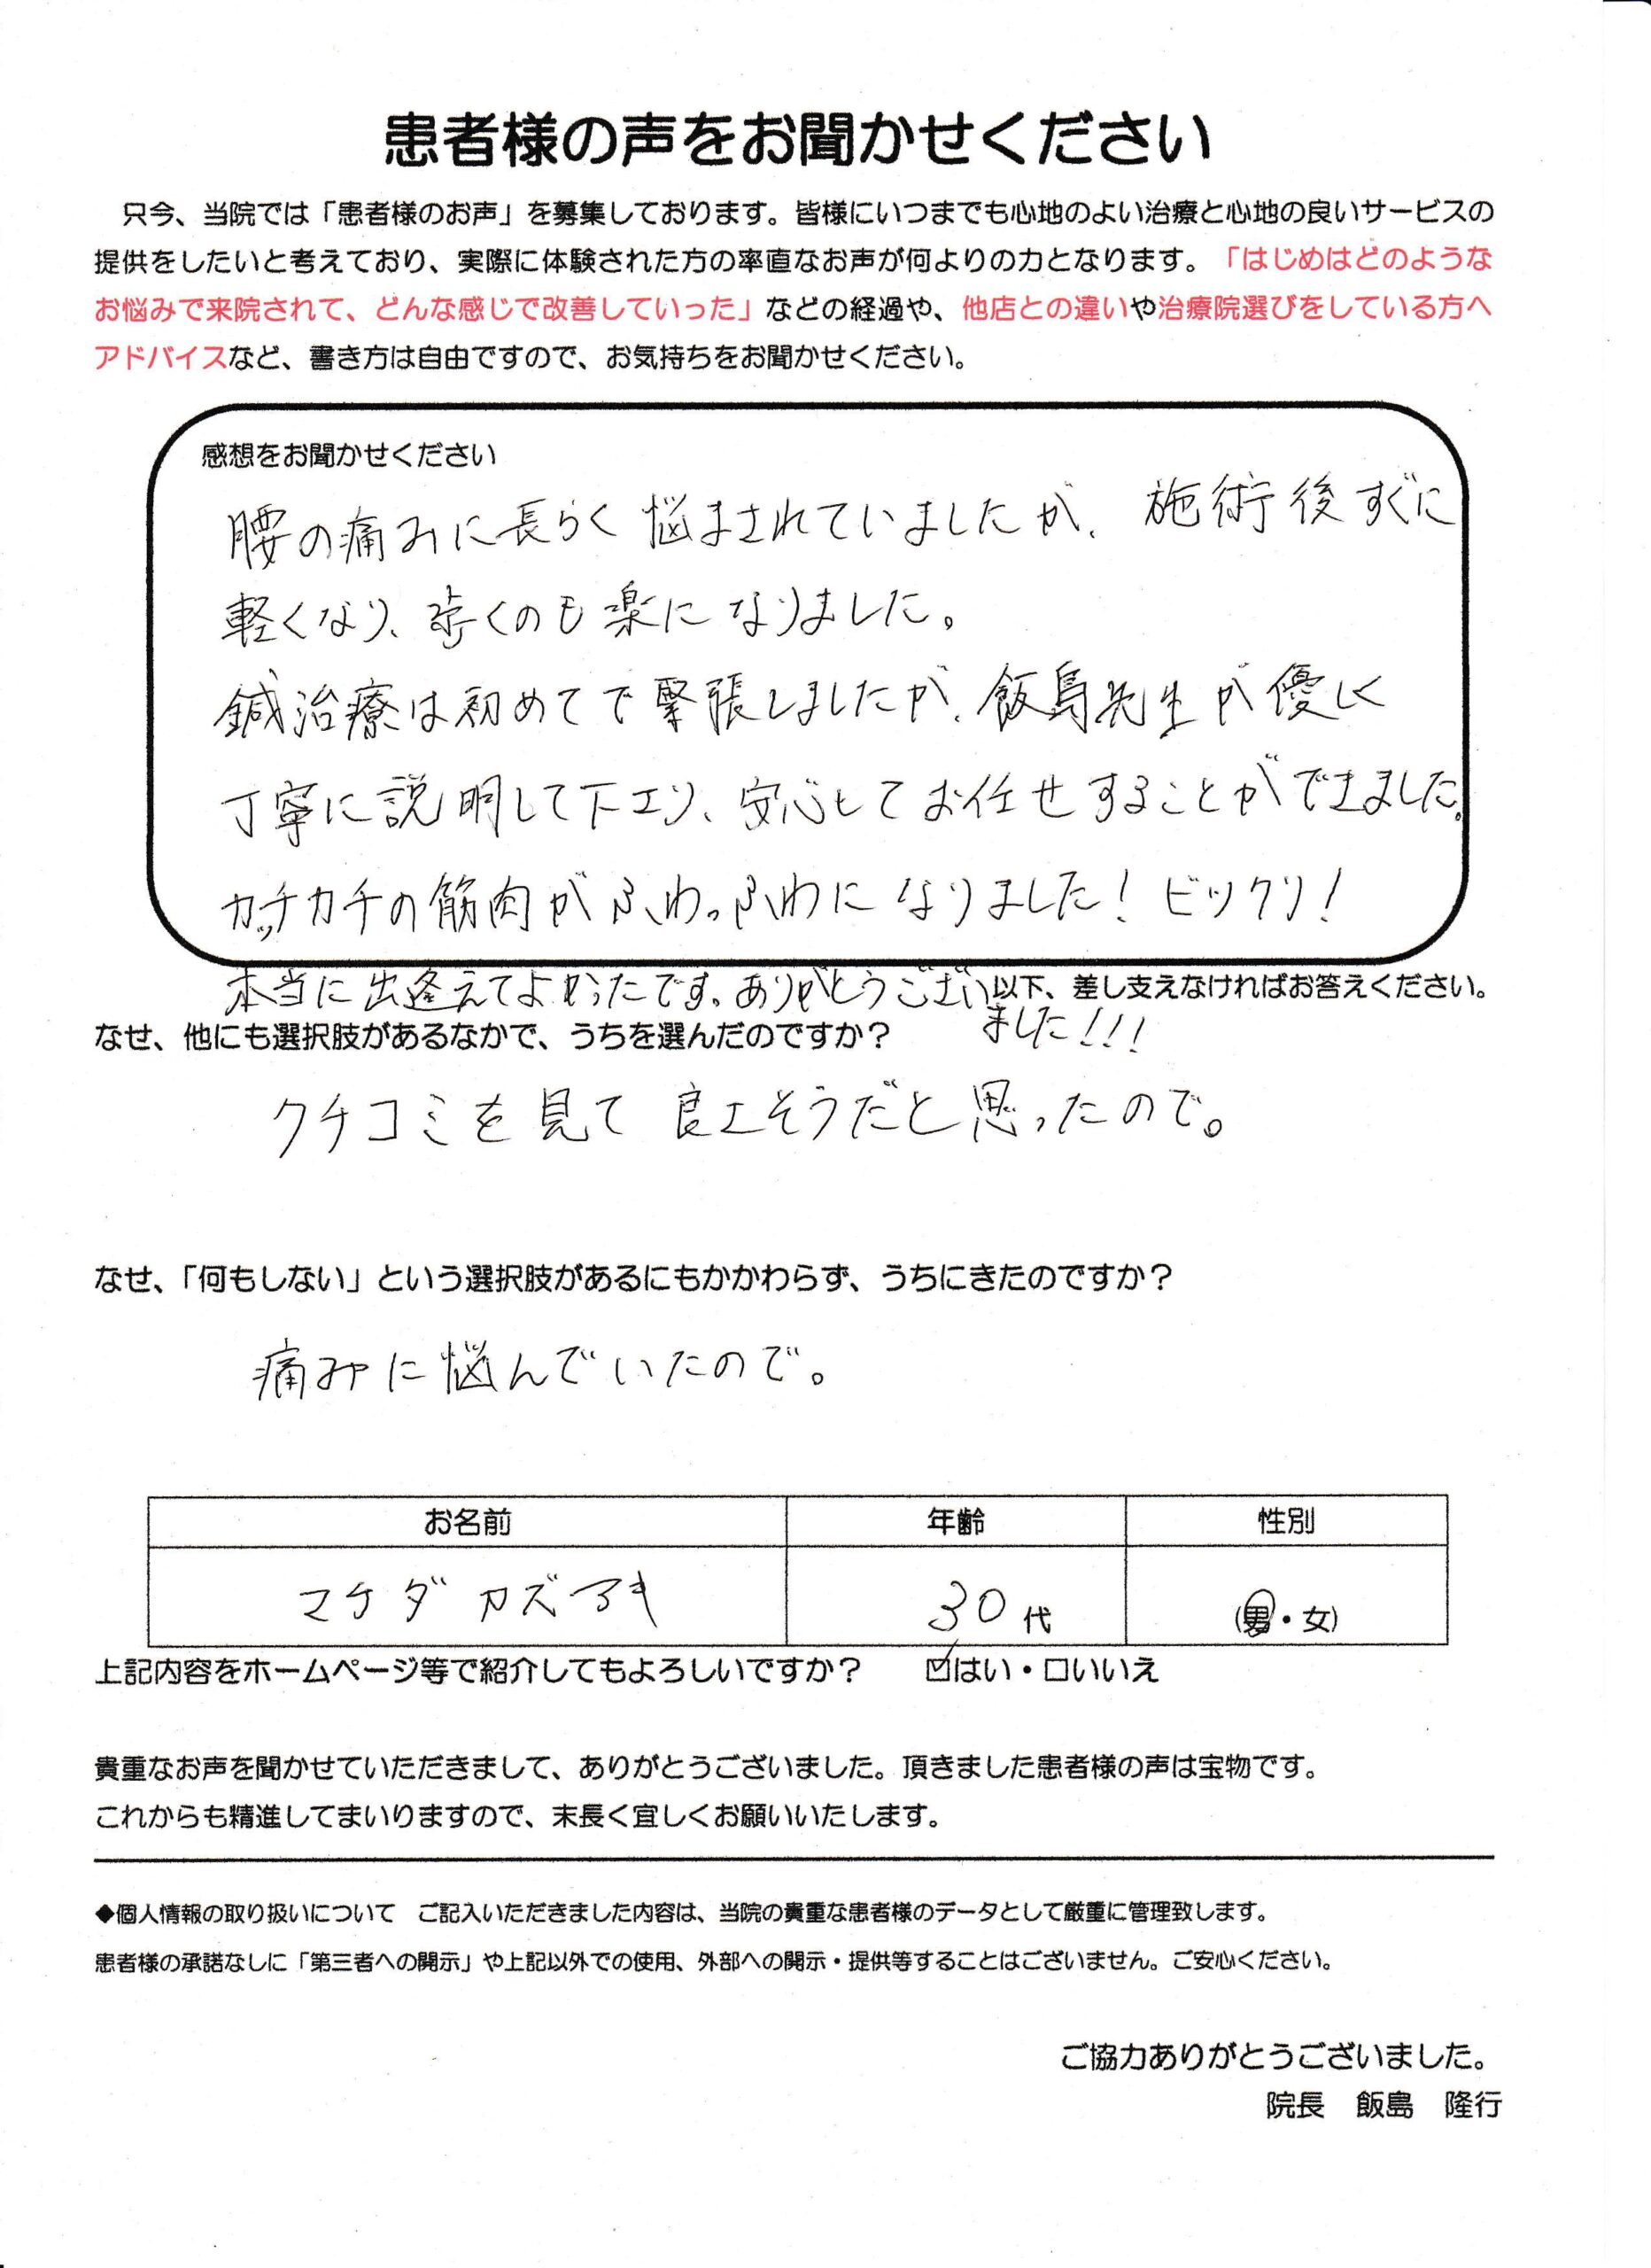 患者様の声をお聞かせください
只今、当院では「患者様のお声」を募集しております。皆様にいつまでも心地のよい治療と心地の良いサービスの
提供をしたいと考えており、実際に体験された方の率直なお声が何よりの力となります。「はじめはどのような
お悩みで来院されて、どんな感じで改善していった」などの経過や、他店との違いや治療院選びをしている方へ
アドバイスなど、書き方は自由ですので、お気持ちをお聞かせください。
感想をお聞かせください
腰の痛みに長らく悩まされていましたが、施術後すぐに
軽くなり、歩くのも楽になりました。
鍼治療は初めてで緊張しましたが、飯島先生が優しく
丁寧に説明して下エリ、安心してお任せすることができました。
カッチカチの筋肉がふわっふわになりました！ビックリ！
本当に出逢えてよかったです。ありがとうござい
ました!!!
以下、差し支えなければお答えください。
なぜ、他にも選択肢があるなかで、うちを選んだのですか？
クチコミを見て良エそうだと思ったので。
なぜ、「何もしない」という選択肢があるにもかかわらず、うちにきたのですか？
痛みに悩んでいたので。
お名前 年齢 性別
マチダ カズアキ 30代 (男・女)
上記内容をホームページ等で紹介してもよろしいですか？ ☑はい・□いいえ
貴重なお声を聞かせていただきまして、ありがとうございました。頂きました患者様の声は宝物です。
これからも精進してまいりますので、末長く宜しくお願いいたします。
◆個人情報の取り扱いについて ご記入いただきました内容は、当院の貴重な患者様のデータとして厳重に管理致します。
患者様の承諾なしに「第三者への開示」や上記以外での使用、外部への開示・提供等することはございません。ご安心ください。
ご協力ありがとうございました。
院長 飯島 隆行